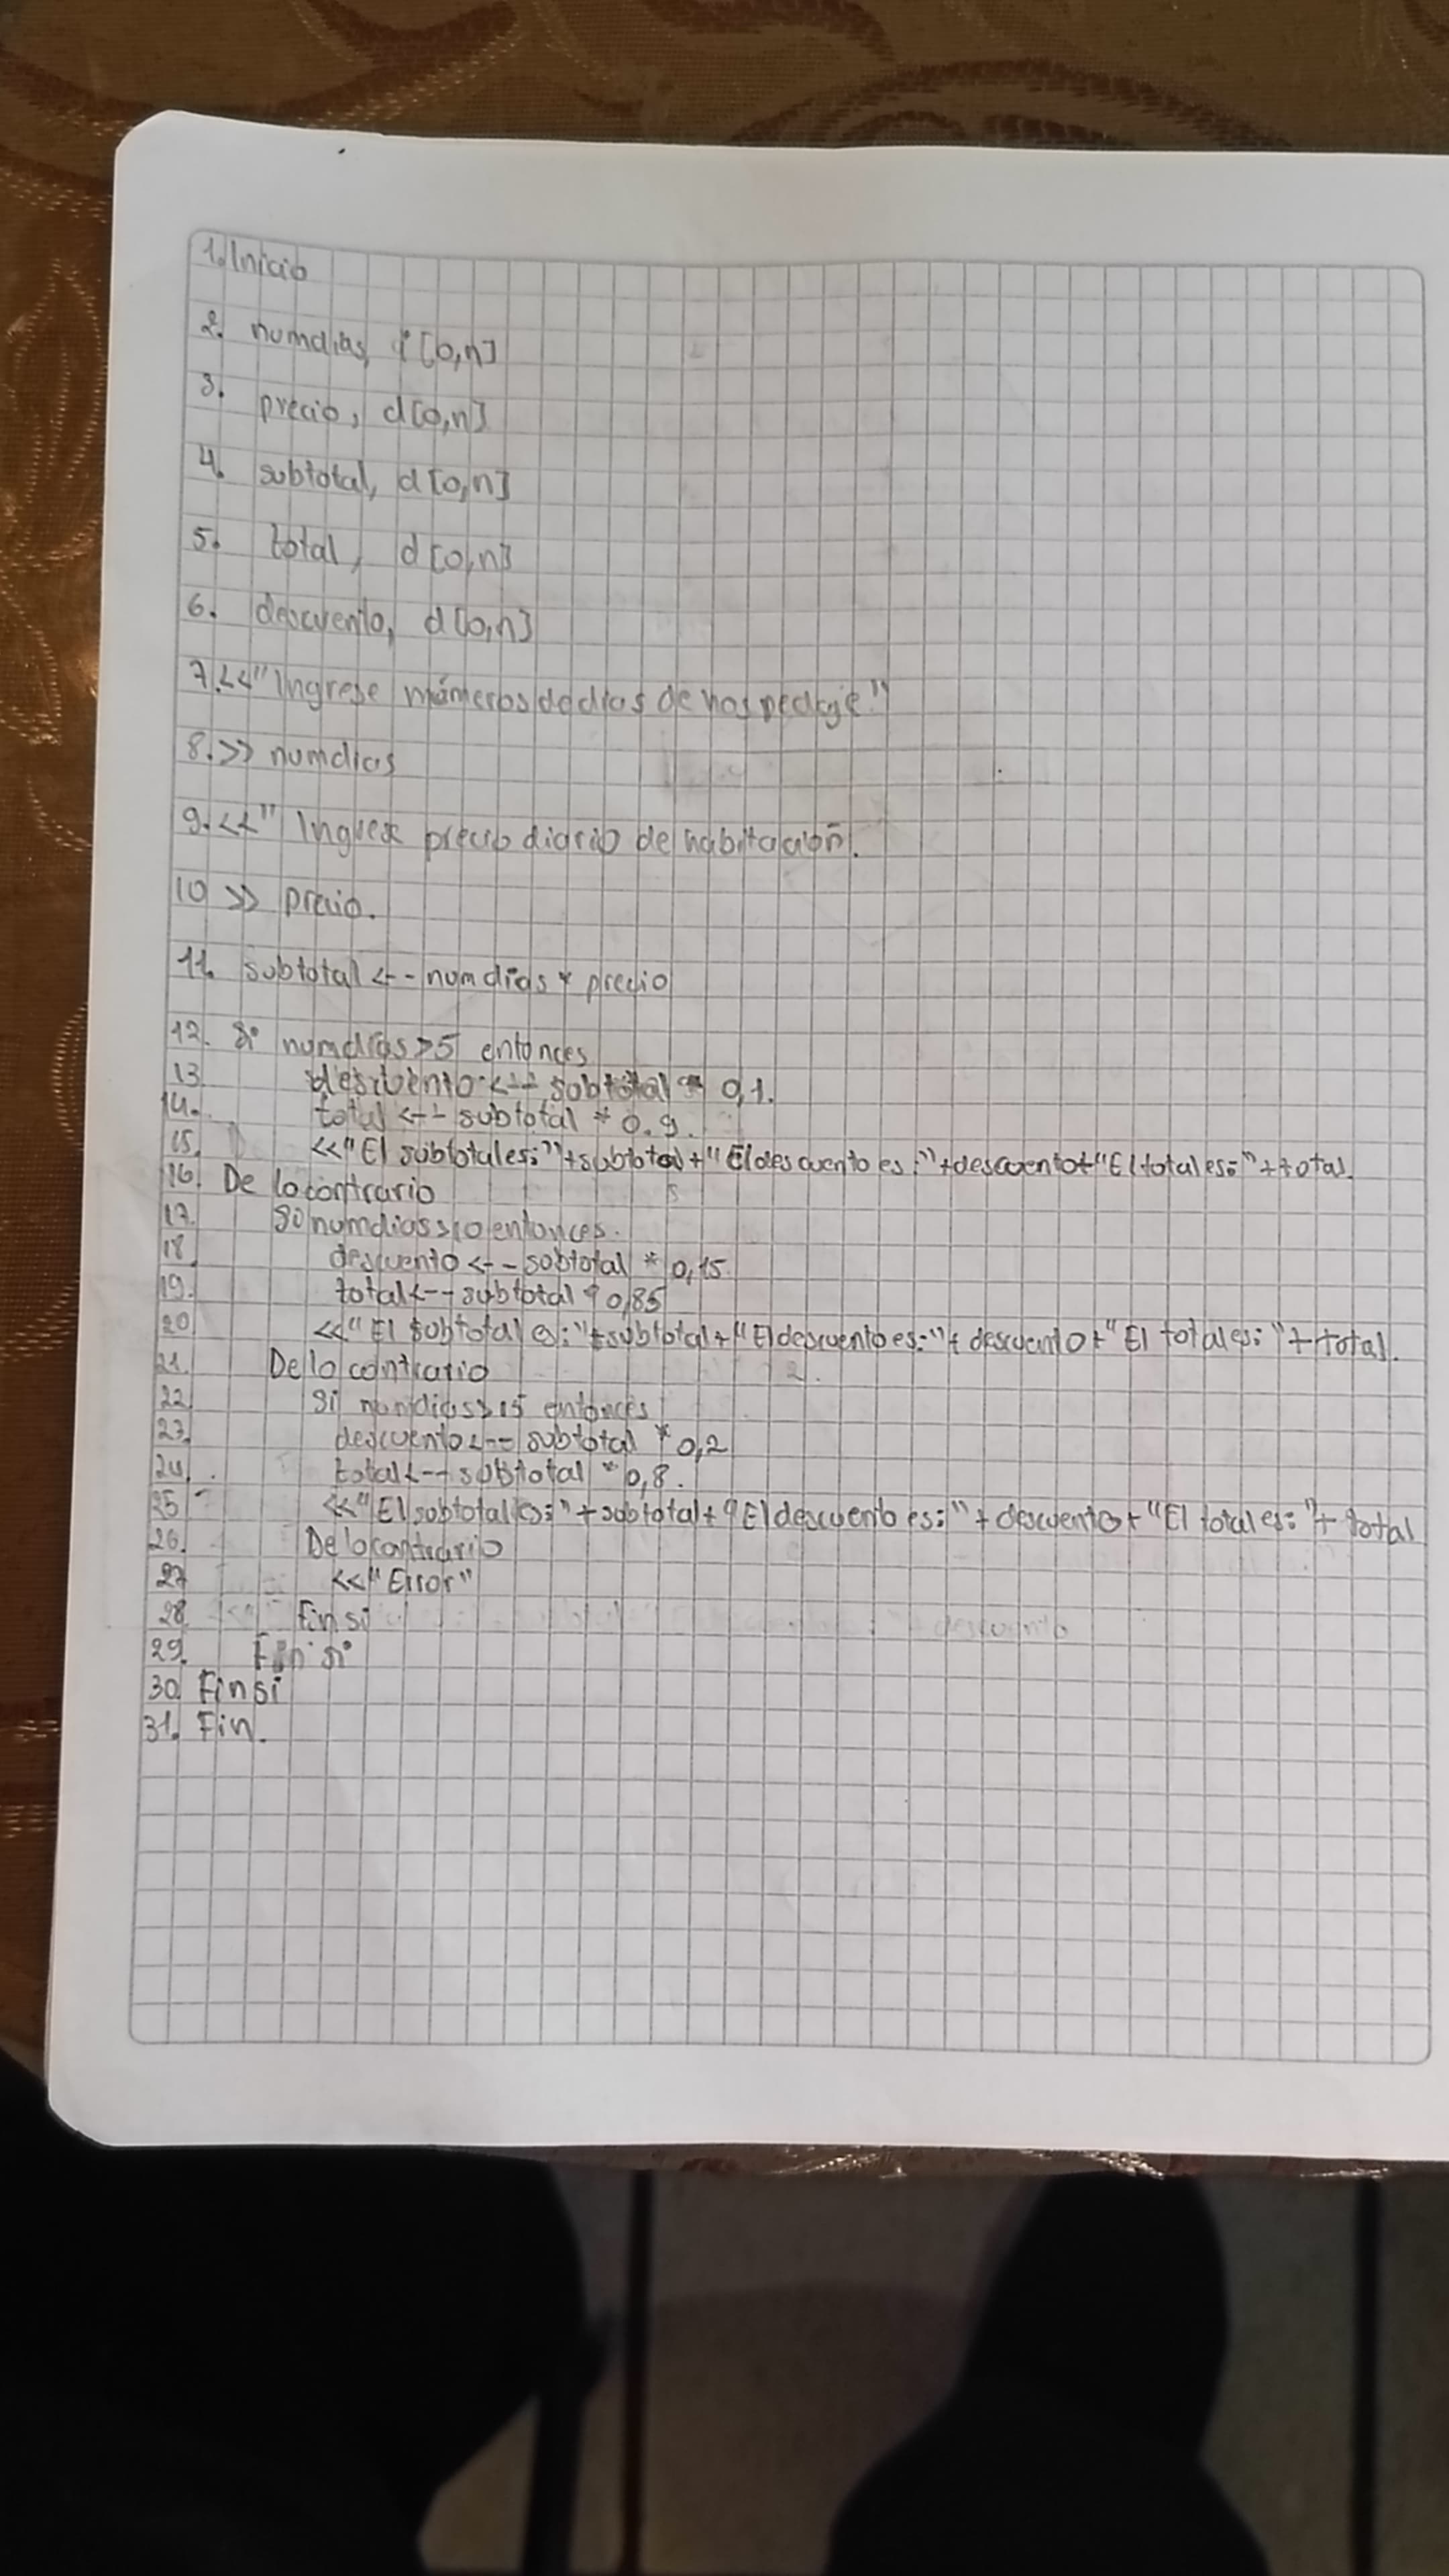 1. Inicio
2. numdias, i [0,n]
3. precio, d[0,n]
4. subtotal, d [0,n]
5. total, d[0,n]
6. descuento, d[0,n]
7.<<"Ingrese números de dias de hospedaje"
8.>> numdias
9.<<" Ingrese precio diario de habitación.
10 >> precio.
11. subtotal <-- numdias * precio
12. Si numdias>5 entonces
13 descuento <-- subtotal * 0,1.
14. total <-- subtotal * 0.9.
15. <<"El subtotales:"+subtotal+"El descuento es:"+descuento+"El totales:"+total.
16. De lo contrario
17. Si numdias>10 entonces.
18 descuento <-- subtotal * 0,15.
19. total<-- subtotal * 0,85
20 <<"El subtotal es:"+subtotal+"El descuento es:"+ descuento+"El totales:"+total.
21. De lo contrario
22 Si numdias>15 entonces
23. descuento <-- subtotal * 0,2
24. total<-- subtotal * 0,8.
25 <<"El subtotal es:"+subtotal+"El descuento es:"+ descuento+"El totales:"+ total
26. De lo contrario
27 <<"Error"
28. Fin si
29. Fin si
30. Fin si
31. Fin.